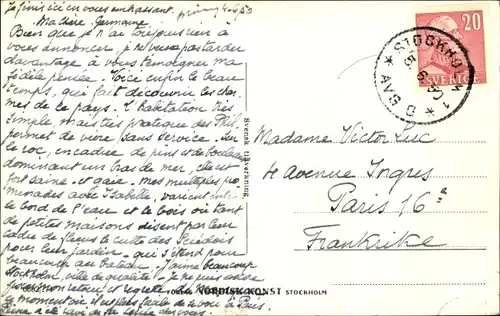 Je finis ici en vous embrassant.
Ma chère Germaine
Bien que je n'ai toujours rien à
vous annoncer, je ne veux pas tarder
davantage à vous témoigner ma
fidèle pensée. Voici enfin le beau
temps, qui fait découvrir les char-
mes de ce pays. L'habitation très
simple mais très pratique des
permet de vivre sans service. Sur
le roc, encadrée de pins et de bouleaux
dominant un bras de mer, elle est
fort saine et gaie. Mes multiples pro-
menades avec Isabelle, varient entre
le bord de l'eau et le bois où tant
de petites maisons disent par leur
cadre de fleurs le culte des Suédois
pour leur jardin, qui s'étend pour
beaucoup au bateau. J'aime beaucoup
Stockholm, ville de qualité. Je ne puis encore
fixer mon retour et regrette
le moment où il plus facile de se voir à Paris.
Svensk tillverkning.
FÖRLAG NORDISK KONST STOCKHOLM
20
SVERIGE
STOCKHOLM 1
Madame Victor Luc
4 avenue Ingres
Paris 16e
Frankrike